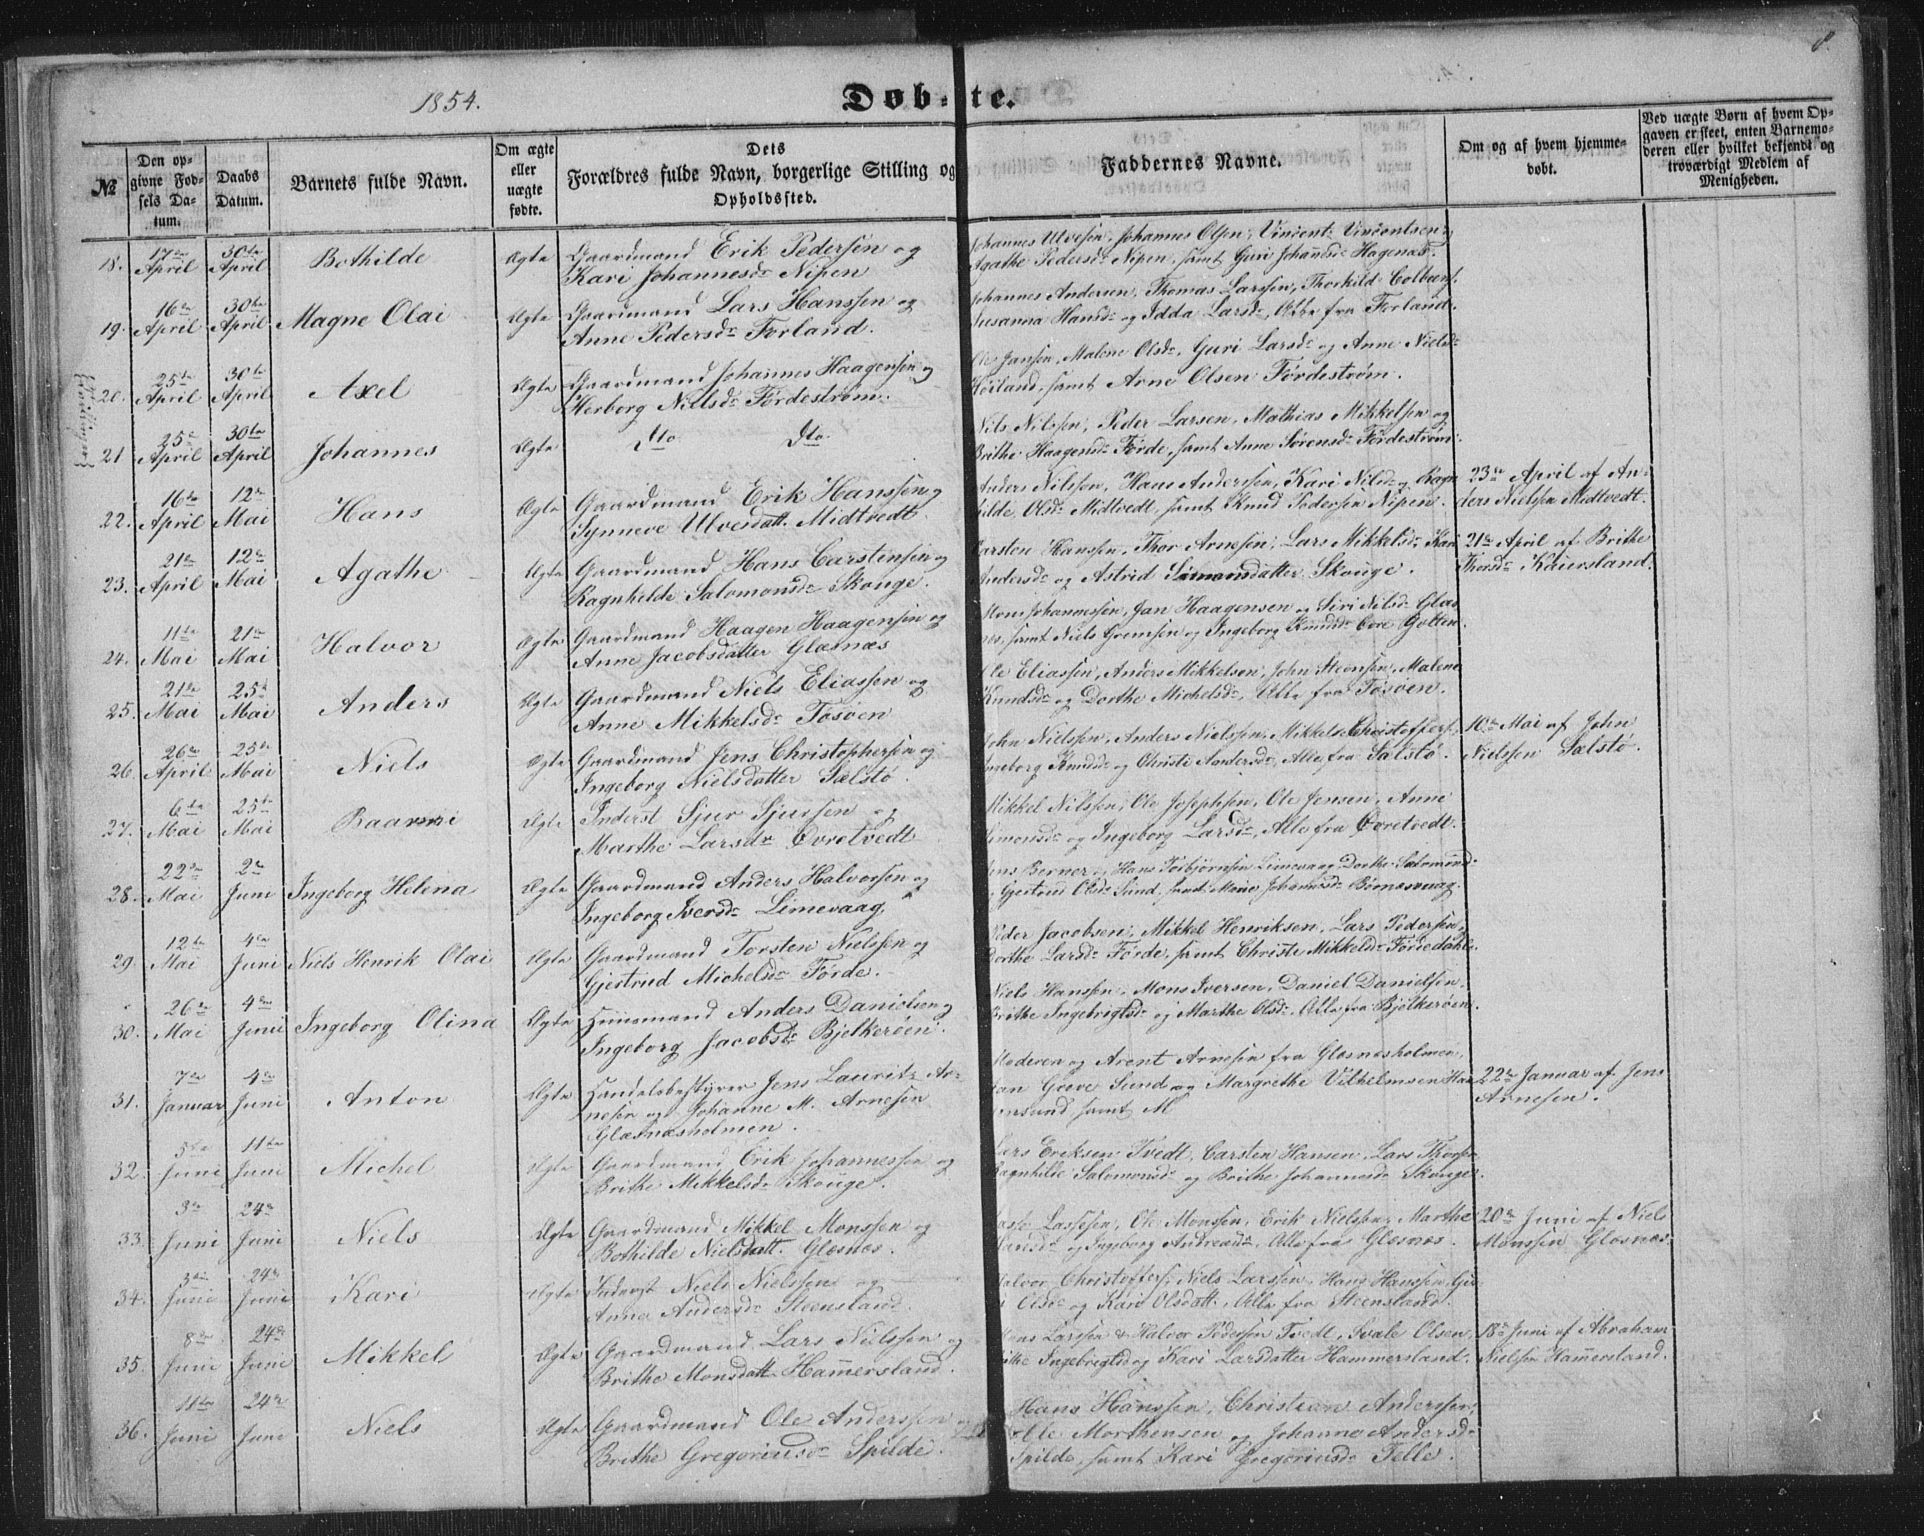 1854.
Døbte.
8.
№
Den opgivne Fødsels Datum.
Daabs Datum.
Barnets fulde Navn.
Om ægte eller uægte fødte.
Dets Forældres fulde Navn, borgerlige Stilling og Opholdssted.
Faddernes Navne.
Om og af hvem hjemmedøbt.
Ved uægte Børn af hvem Opgaven er skeet, enten Barnemoderen eller hvilket bekjendt og troværdigt Medlem af Menigheden.
18. 17de April 30te April Bothilde Ægte Gaardmand Erik Pedersen og
Kari Johannesdr Nipen
Johannes Ulvesen, Johannes Olsen, Vincent Vincentsen,
Agathe Pedersdr Nipen, samt Guri Johansdr Hagenæs.
19. 16de April 30te April Magne Olai Ægte Gaardmand Lars Hanssen og
Anne Pedersdr Forland.
Johannes Andersen, Thomas Larssen, Thorkild Colbens.
Susanna Hansdr og Idda Larsdr, Alle fra Forland.
Tvillinger
20. 25te April 30te April Axel Ægte Gaardmand Johannes Haagensen og
Herborg Nielsdr Førdestrøm.
Ole Jansen, Malene Olsdr, Guri Larsdr og Anne Nielsdr
Høiland, samt Arne Olsen Førdestrøm.
21 25de April 30te April Johannes Ægte Dto Dto
Nils Nilssen, Peder Larsen, Mathias Mikkelsen og
Brithe Haagensdr Førde, samt Anne Sørensdr Førdestrøm.
22. 16de April 12te Mai Hans Ægte Gaardmand Erik Hanssen og
Synneve Ulvesdatt. Midtvedt
Anders Nilssen, Hans Anderssen, Kari Nilsdr og Ragn
hilde Olsdr Midtvedt, samt Knud Pedersen Nipen.
23de April af An-
ders Nielsen Midtvedt.
23. 21de April 12te Mai Agathe Ægte Gaardmand Hans Carstensen og
Ragnhilde Salomonsdr Skouge.
Carsten Hanssen, Thor Arnesen, Lars Mikkelsdr, Kari
Andersdr og Astrid Simonsdatter Skouge.
21de April af Brithe
Thorsdr Kaursland.
24. 11te Mai 21de Mai Halvor Ægte Gaardmand Haagen Haagensen og
Anne Jacobsdatter Glæsnæs
Mons Johannessen, Jan Haagensen og Siri Nilsdr Glæs
næs, samt Niels Gremsen og Ingeborg Knudsdr Gotten.
25. 21de Mai 25de Mai Anders Ægte Gaardmand Niels Eliassen og
Anne Mikkelsdr Tøsøen
Ole Eliassen, Anders Mikkelsen, John Steensen, Malene
Knudsdr og Dorthe Michelsdr, Alle fra Tøsøen.
26. 26de April 25de Mai Niels Ægte Gaardmand Jens Christophersen og
Ingeborg Nielsdatter Sælstø.
John Nielssen, Anders Nielssen, Mikkel Christoffers.,
Ingeborg Knudsdr og Christi Andersdr, Alle fra Sælstø.
10de Mai af John
Nielssen Sælstø.
27. 6te Mai 25te Mai Ægte Inderst Sjur Sjursen og
Marthe Larsdr Øvretvedt
Mikkel Nilssen, Ole Josephsen, Ole Jensen, Anne
Simonsdr og Ingeborg Larsdr, Alle fra Øvretvedt.
28. 22de Mai 2de Juni Ingeborg Helena Ægte Gaardmand Anders Halvorsen og
Ingeborg Iversdr Limevaag.
Jens Berner, Hans Torbjørnsen Limevaag, Dorthe Salomonsd
Gjertrud Olsdr Sund, samt Marie Johannesdr Børnesvaag.
29. 12te Mai 4de Juni Niels Henrik Olai Ægte Gaardmand Torsten Nielssen og
Gjertrud Michelsdr Førde.
Peder Jacobsen, Mikkel Henriksen, Lars Pedersen,
Dorthe Larsdr Førde, samt Christi Mikkelsdr Førdedahle.
30. 26de Mai 4de Juni Ingeborg Olina Ægte Huusmand Anders Danielsen og
Ingeborg Jacobsdr Bjelkerøen.
Niels Hanssen, Mons Iversen, Daniel Danielsen,
Brithe Ingebrigtsdr og Marthe Olsdr, Alle fra Bjelkerøen.
31. 7de Januar 4de Juni Anton Ægte Handelsbestyrer Jens Lauritz Ar-
nesen og Johanne M. Arnesen
Glæsnæsholmen.
Moderen og Arent Arnesen fra Glæsnæsholmen,
Jan Greve Sund og Margrethe Vilhelmsen Har
ensund samt M
22de Januar af Jens
Arnesen.
32. 5te Juni 11te Juni Michel Ægte Gaardmand Erik Johannessen og
Brithe Mikkelsdr Skouge.
Lars Eriksen Tvedt, Carsten Hansen, Lars Thorsen
Ragnhilde Salomonsdr og Brithe Johannesdr Skouge.
33. 3de Juni 24de Juni Niels Ægte Gaardmand Mikkel Monssen og
Bothilde Nielsdatt. Glesnes.
Lasse Lassesen, Ole Monssen, Erik Nielsen, Marthe
Larsdr og Ingeborg Andreasdr, Alle fra Glesnes.
20de Juni af Niels
Monssen Glesnes.
34. 3die Juni 24de Juni Kari Ægte Inderst Niels Nielssen og
Anna Andersdr Steensland.
Halvor Christoffers., Niels Larssen, Hans Hanssen, Gu-
ri Olsdr og Kari Olsdatt., Alle fra Steensland.
35. 8de Juni 24de Juni Mikkel Ægte Gaardmand Lars Nielssen og
Brithe Monsdatt. Hammersland
Mons Larssen & Halvor Pedersen Tvedt, Svale Olsen,
Brithe Ingebrigtsd og Kari Larsdatter Hammersland.
18de Juni af Abraham
Nielsen Hammersland.
36. 11te Juni 24de Juni Niels Ægte Gaardmand Ole Anderssen og
Brithe Gregoriusdr Spilde.
Hans Hanssen, Christian Anderssen,
Ole Morthensen og Johanne Andersdr
Spilde, samt Kari Gregoriusdr Telle.